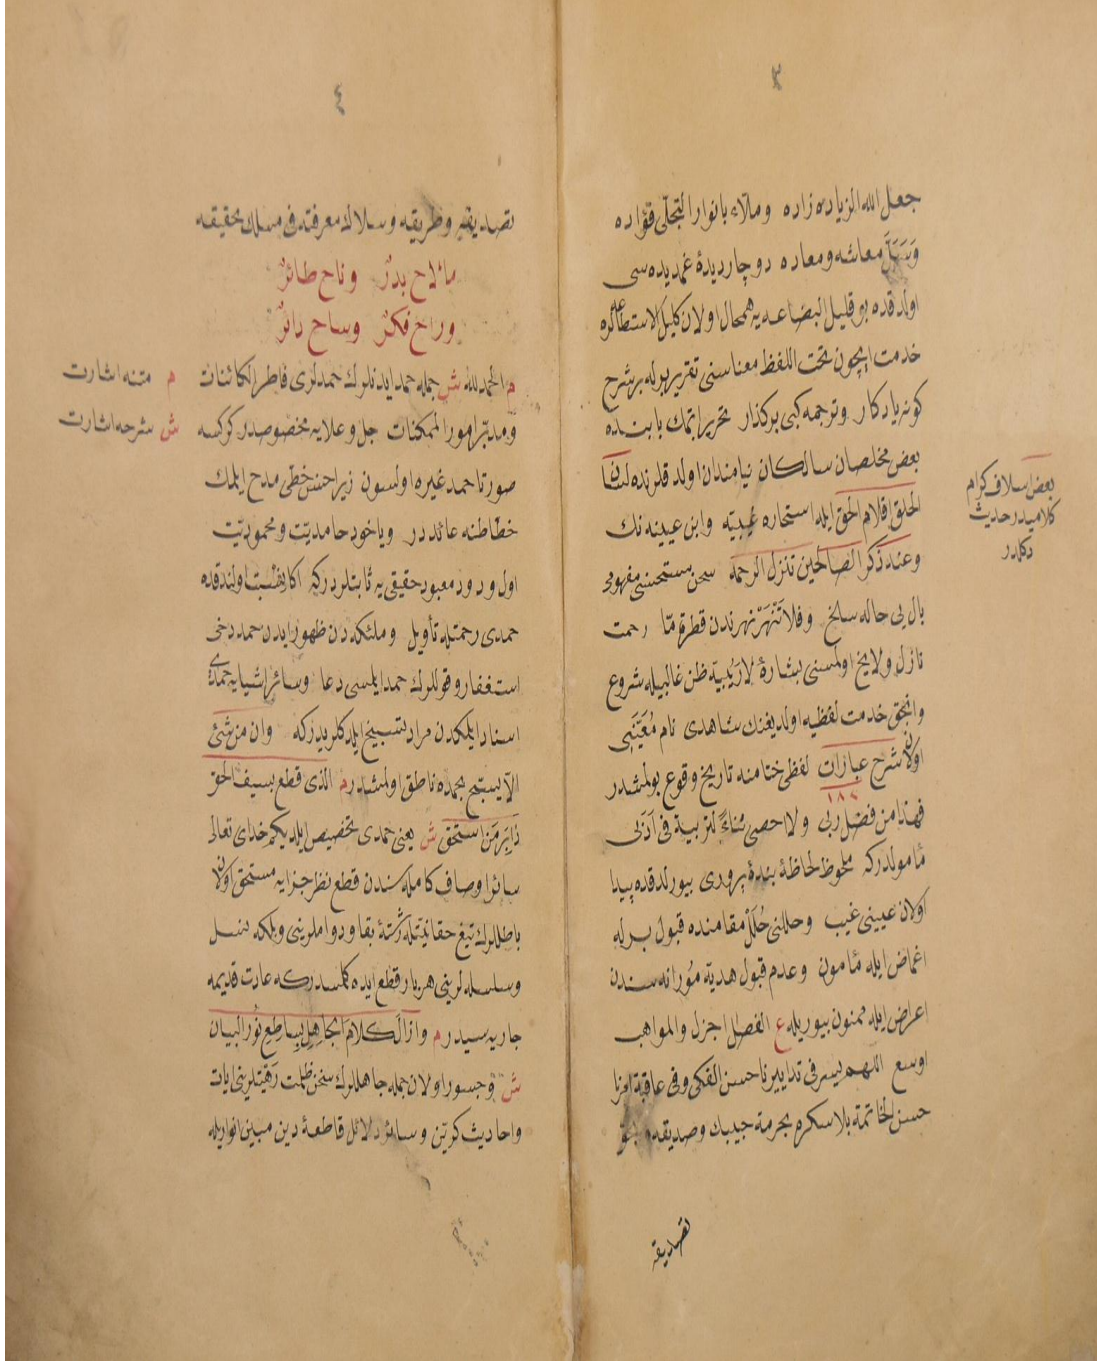 ٣
جعل الله المزياده زاده وملاء بانوار التجلى فؤاده
وسهل معاشه ومعاده دوچار ديدهٔ غمديده سى
اولدقده بو قليل البضاعه يه همحال اولان كليل الاستطاعه لره
خدمت ايچون تحت اللفظ معناسنى تقرير يرله بر شرح
كونه يادكار وترجمه كبى بركذار تحرير ايتمك بابنده
بعض مخلصان سالكان نيازمندان اولدقلرنده لسان
الخلق اقلام الحق ايله استخاره غيبيه وابن عيينه نك
وعند ذكر الصالحين تنزل الرحمه سخن مستحسنى مفهومى
بال بى حاله سانح وفلا تنهر نهرندن قطرة ما رحمت
نازل ولايح اولمسنى بشارهٔ لاريبيه ظن غالبيله شروع
وانجق خدمت لفظيه اولديغنك شاهدى نام معتبنى
اولان شرح عبارات لفظى ختامنه تاريخ وقوع بولمشدر
فهذا من فضل ربى ولا احصى ثناءً لتربية فى ادنى
مأمولدركه ملحوظ لحاظهٔ بنده پرورى بيورلدقده پيدا
اولان عيبنى غيب وخللنى حُلَل مقامنده قبول برله
اغماض ايله مأمون وعدم قبول هديهٔ مورانه سندن
اعراض ايله ممنون بيوريله ع الفضل اجزل والمواهب
اوسع اللهم يسر فى تدابيرنا حسن الفكر وفى عاقبة امرنا
حسن الخاتمة بلا سكره بحرمة حبيبك وصديقه وبحق
تصديقه
بعض اسلاف كرام
كلاميدر حديث
دكلدر
٤
تصديقيه وطريقه وسلاك معرفته فى مسلك حقيقه
مالاح بدرٌ وناح طائرٌ
وراح فكرٌ وساح دائرٌ
م الحمد لله ش جمله حمد ايدنلرك حمدلرى فاطر الكائنات
ومدبر امور الممكنات جل وعلايه مخصوصدر كركسه
صورتا حمد غيره اولسون زيرا حسن خطى مدح ايلمك
خطاطنه عائددر وياخود حامديت ومحموديت
اول ودود معبود حقيقى يه ثابتلردركه اكا نسبت اولندقده
حمدى رحمتله تأويل وملئكه دن ظهور ايدن حمد دخى
استغفار وقوللرك حمد ايلمسى دعا وسائر اشيايه حمدى
اسناد ايلمكدن مراد تسبيح ايلدكلريدركه وان من شئ
الا يسبح بحمده ناطق اولمشدر م الذى قطع بسيف الحق
دابر من استحق ش يعنى حمدى تخصيص ايلديكم خداى تعالى
سائر اوصاف كامله سندن قطع نظر جزايه مستحق اولان
باطللرك تيغ حقانيتله رشتهٔ بقا ودواملرينى وبلكه نسل
وسلسله لرينى هر بار قطع ايده كلمسدركه عادت قديمه
جاريه سيدر م وازال كلام الجاهل بساطع نور البيان
ش وجسور اولان جمله جاهللرك سخن ظلمت رقيتلرينى ايات
واحاديث كريمن وسائر دلائل قاطعهٔ دين مبين انواريله
م متنه اشارت
ش شرحه اشارت